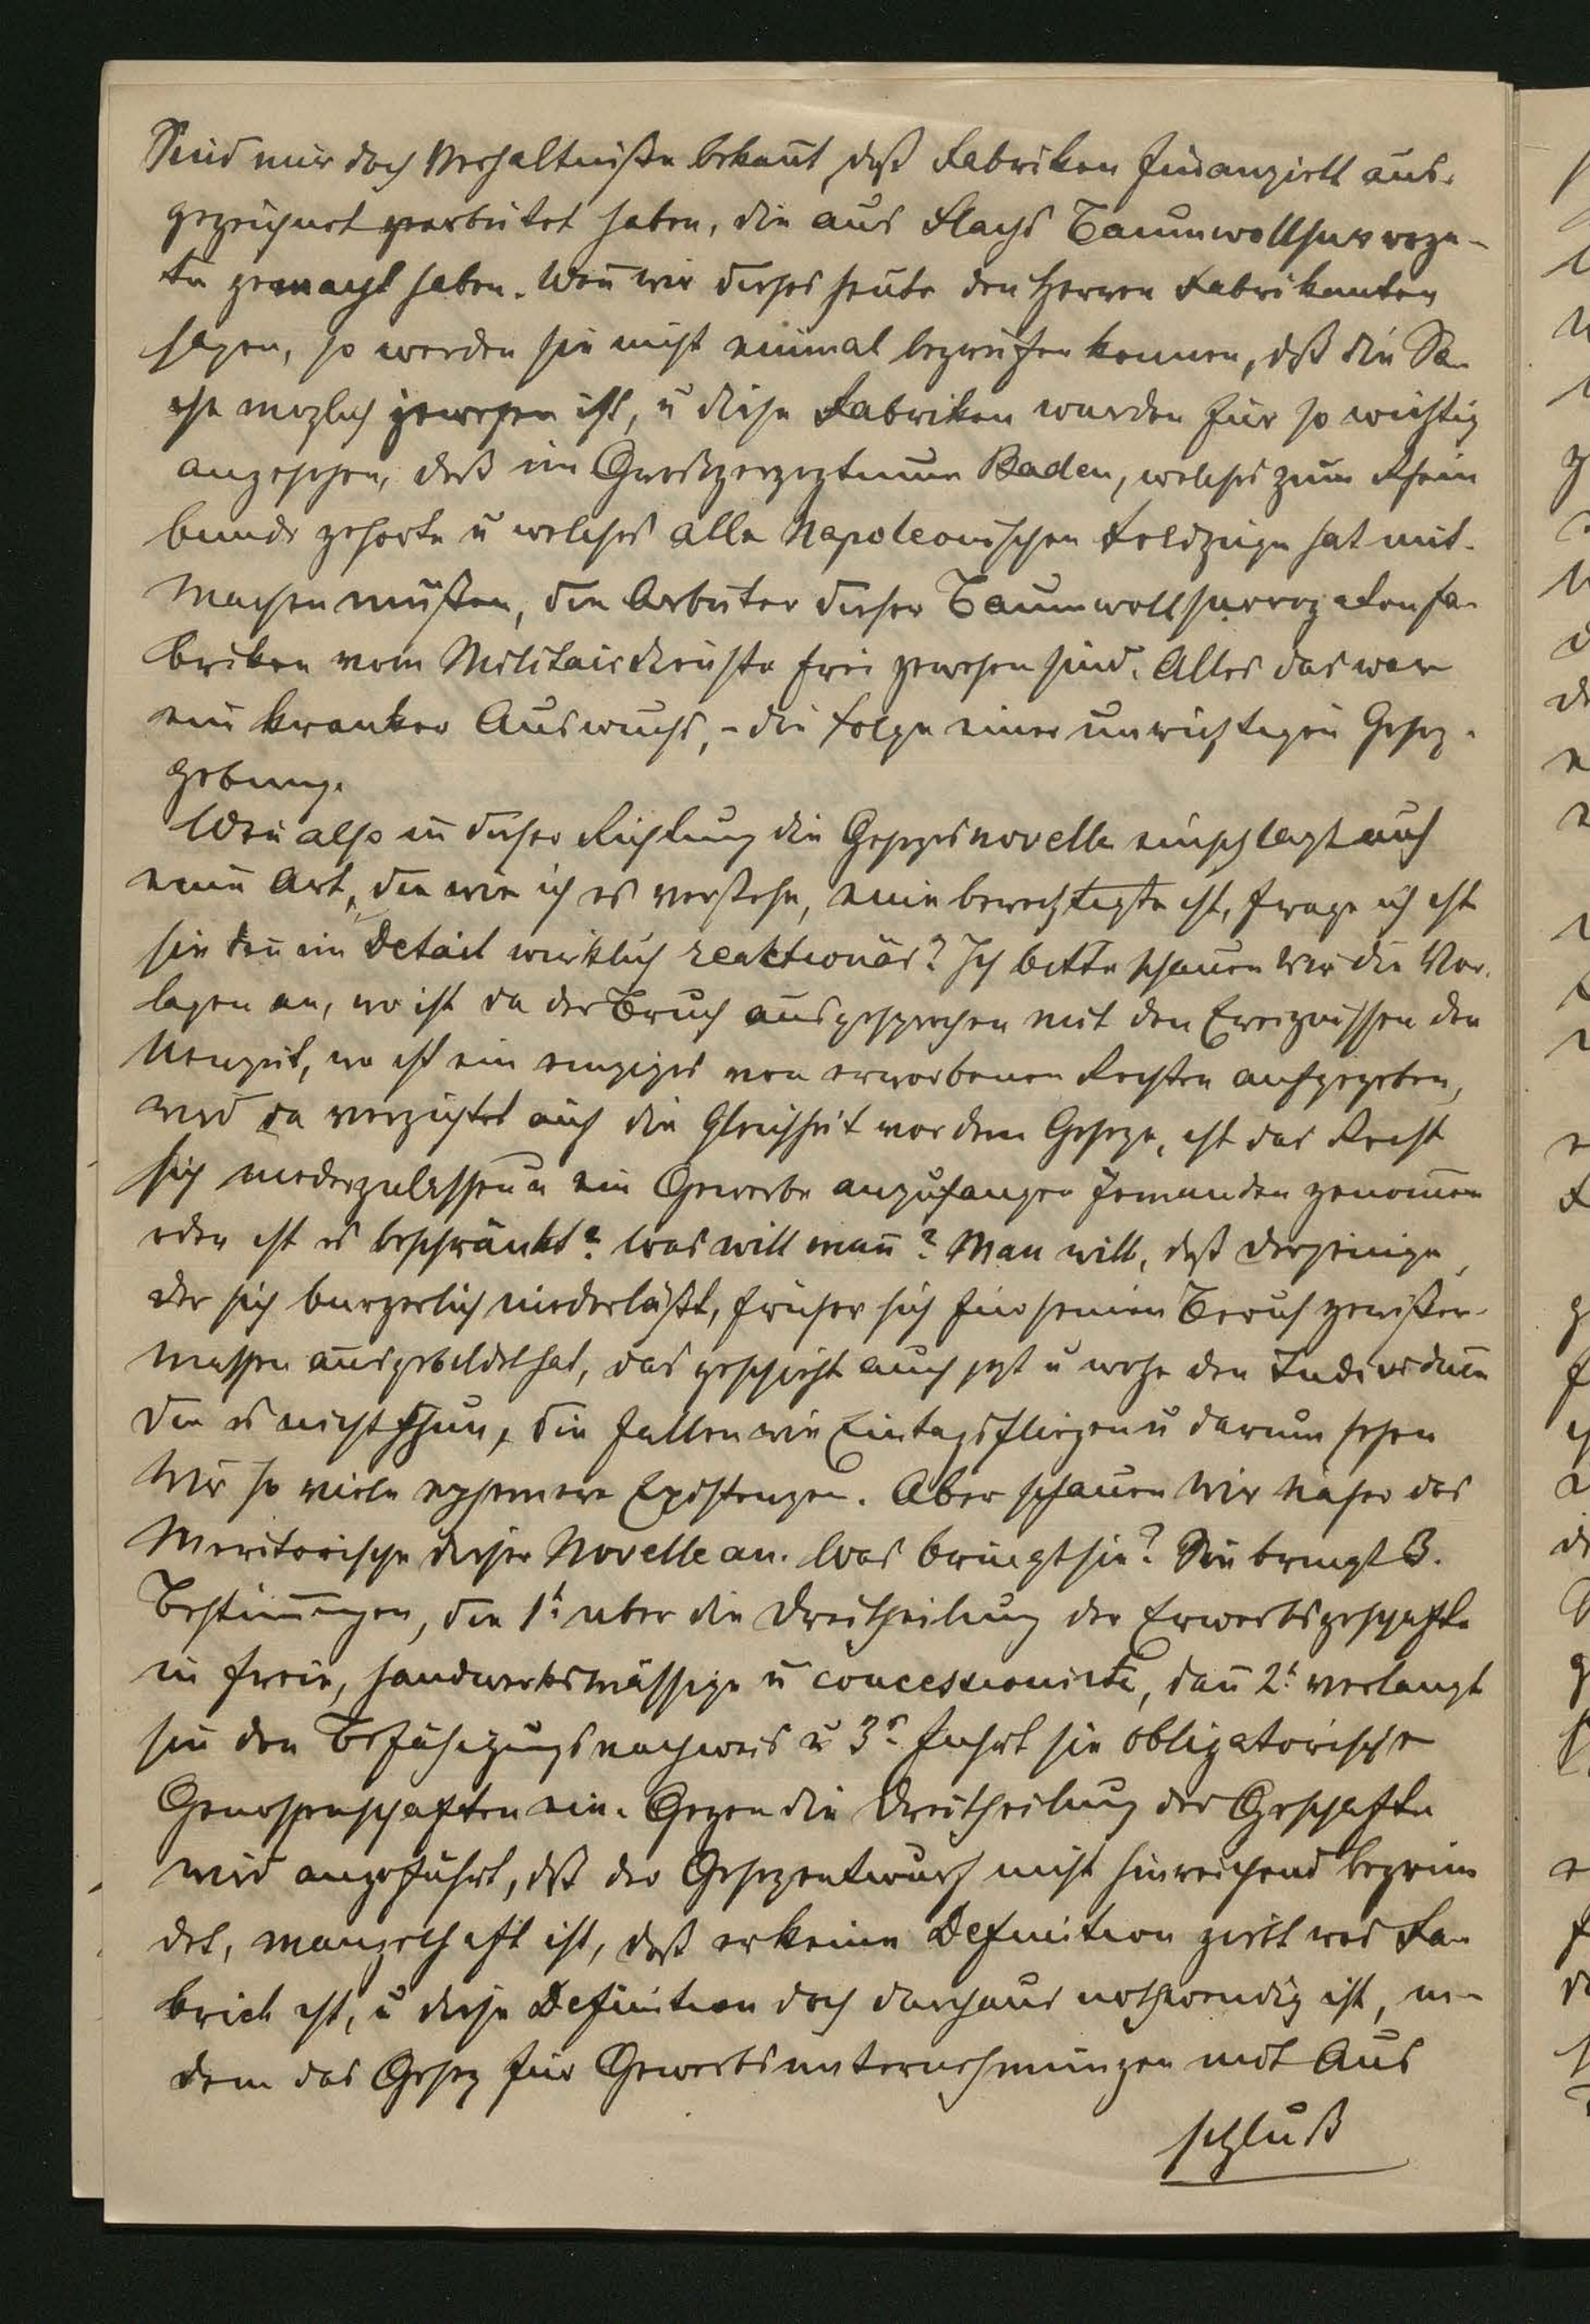 Sind mir doch Verhältniße bekañt, daß Fabriken finanziell aus-
gezeichnet gearbeitet haben, die aus Flachs Baumwollsurroga-
te gemacht haben. Weñ wir dieses heute den Herren Fabrikanten
sagen, so werden sie nicht einmal begreifen konnen, dß die Sa-
che moglich gewesen ist, u diese Fabriken wurden für so wichtig
angesehen, daß im Großherzogtum Baden, welches zum Rhein
bunde gehorte u welches alle Napoleonischen Feldzüge hat mit-
machen müßen, die Arbeiter dieser Baumwollsurrogatenfa-
briken vom Militairdienste frei gewesen sind. Alles das war
ein kranker Auswuchs, - die Folge einer unrichtigen Gesez-
gebung.
Weñ also in dieser Richtung die Gesezesnovelle einschlagt auf
eine Art, die wie ich es verstehe, eine berechtigte ist, frage ich ist
sie deñ im Detail wirklich reaktionär? Ich bitte schauen wir die Vor-
lagen an, wo ist da der Bruch ausgesprochen mit den Ereignissen der
Neuzeit, wo ist ein einziges von erworbenen Rechten aufgegeben,
wird da verzichtet auf die Gleichheit vor dem Geseze, ist das Recht
sich niederzulassen u ein Gewerbe anzufangen Jemanden genom̄en
oder ist es beschränkt? Was will mañ? Man will, daß derjenige,
der sich burgerlich niederläßt, früher sich für seinen Beruf gewißer-
massen ausgebildet hat, das geschieht auch jezt u wehe den Individuen
die es nicht thun, die fallen wie Eintagsfliegen u darum sehen
wir so viele ephemere Existenzen. Aber schauen wir näher das
Meritorische dieser Novelle an. Was bringt sie? Sie bringt 3.
Bestim̄ungen, die 1t. uber die Dreitheilung der Erwerbsgeschafte
in freie, handwerksmässige u concessionirte, dañ 2t. verlangt
sie den Befähigungsnachweis u 3s. fuhrt sie obligatorische
Genossenschaften ein. Gegen die Dreitheilung der Geschafte
wird angeführt, dß der Gesezentwurf nicht hinreichend begrün
det, mangelhaft ist, daß er keine Definition giebt was Fa-
brick ist, u diese Definition doch durchaus nothwendig ist, in-
dem das Gesez für Gewerbsunternehmungen mit Aus
schluß